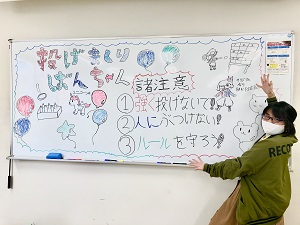 投げまくり
ばんちゃん
諸注意
①強く投げないで!
②人にぶつけない!
③ルールを守ろう!
RECO